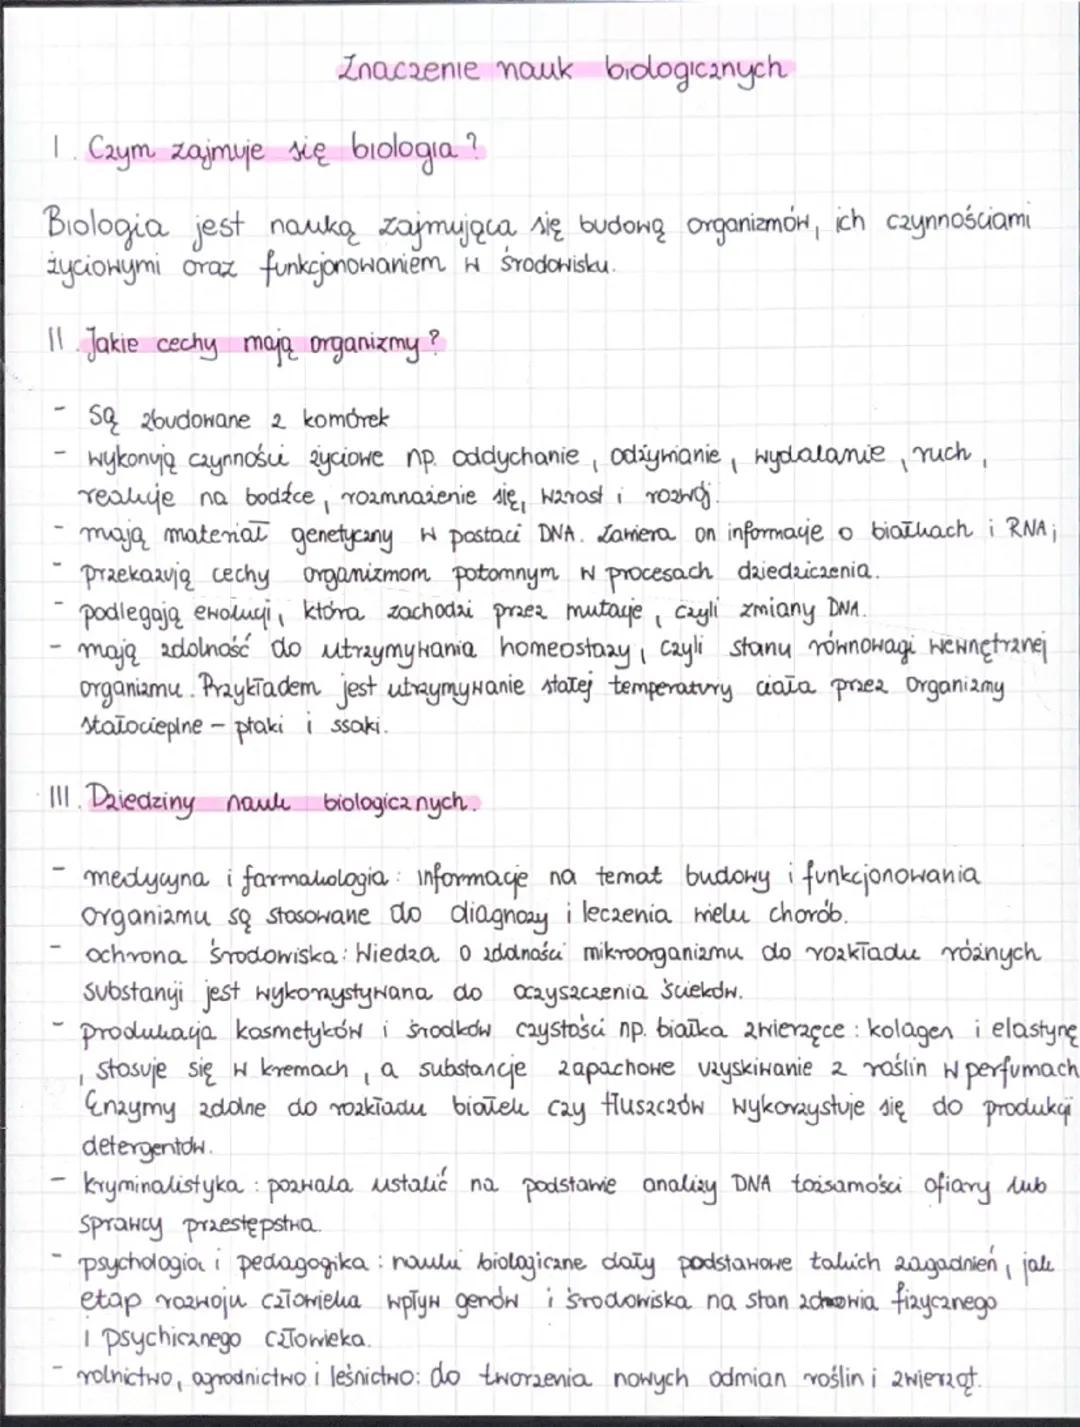 Znaczenie nauk biologicznych
I. Czym zajmuje się biologia?
Biologia jest nauką zajmującą się budową organizmów, ich czynnościami
życiowymi oraz funkcjonowaniem w środowisku.
II. Jakie cechy mają organizmy?
- są zbudowane z komórek
- wykonują czynności życiowe np. oddychanie, odżywianie, wydalanie, ruch,
reakcje na bodźce, rozmnażenie się, wzrast i rozwój.
- mają materiał genetyczny w postaci DNA. Zawiera on informacje o białkach i RNA;
- przekazują cechy organizmom potomnym w procesach dziedziczenia.
- podlegają ewolucji, która zachodzi przez mutacje, czyli zmiany DNA.
- mają zdolność do utrzymywania homeostazy, czyli stanu równowagi wewnętrznej
organizmu. Przykładem jest utrzymywanie stałej temperatury ciała przez organizmy
stałocieplne - ptaki i ssaki.
III. Dziedziny nauk biologicznych.
- medycyna i farmakologia: informacje na temat budowy i funkcjonowania
organizmu są stosowane do diagnozy i leczenia wielu chorób.
- ochrona środowiska: Wiedza o zdolności mikroorganizmu do rozkładu różnych
substancji jest wykorzystywana do oczyszczenia ścieków.
- produkacja kosmetyków i środków czystości np. białka zwierzęce: kolagen i elastynę
, stosuje się w kremach, a substancje zapachowe uzyskiwanie z roślin w perfumach
Enzymy zdolne do rozkładu białek czy tłuszczów wykorzystuje się do produkcji
detergentów.
- kryminalistyka: pozwala ustalić na podstawie analizy DNA tożsamości ofiary lub
sprawcy przestępstwa.
- psychologia i pedagogika: nauki biologiczne dały podstawowe takich zagadnień, jak
etap rozwoju człowieka wpływ genów i środowiska na stan zdrowia fizycznego
i psychicznego człowieka.
- rolnictwo, ogrodnictwo i leśnictwo: do tworzenia nowych odmian roślin i zwierząt.